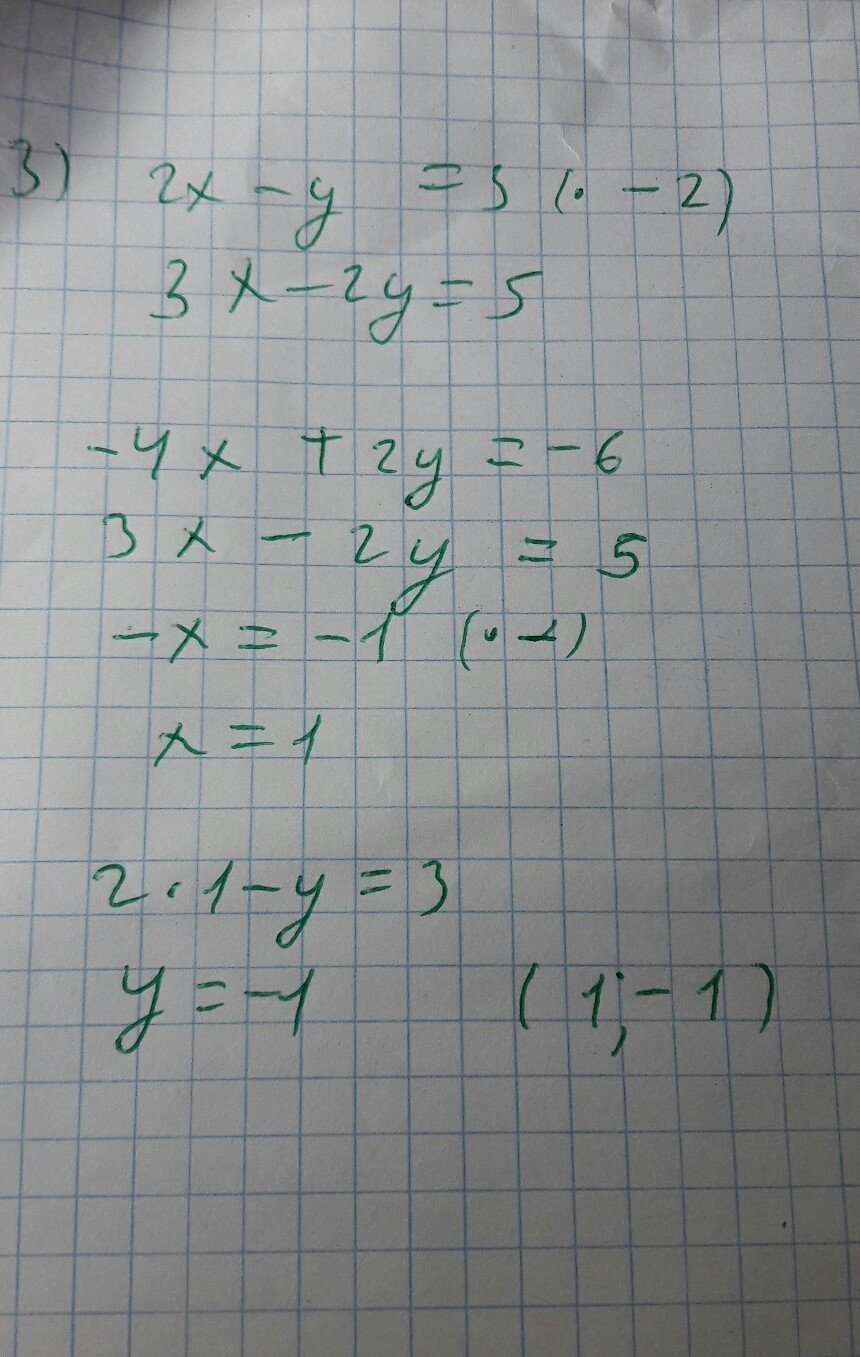 3) 2x - y = 3 (· - 2)
3x - 2y = 5
-4x + 2y = -6
3x - 2y = 5
-x = -1 (· -1)
x = 1
2 · 1 - y = 3
y = -1 (1; -1)